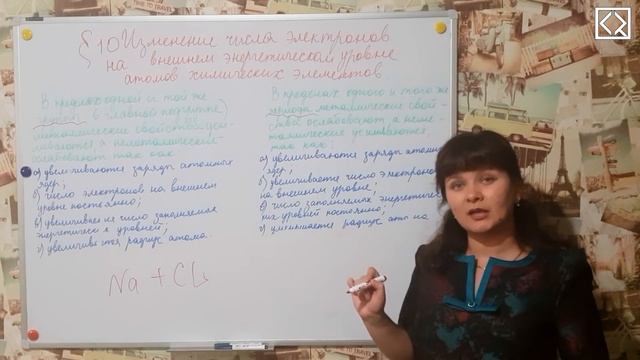 §10 Изменение числа электронов
на внешнем энергетическом уровне
атомов химических элементов
В пределах одной и той же
группы (в главной подгруппе)
металлические свойства уси-
ливаются, а неметаллические
ослабевают, так как
а) увеличиваются заряды атомных
ядер;
б) число электронов на внешнем
уровне постоянно;
в) увеличивается число заполняемых
энергетических уровней;
г) увеличивается радиус атома.
В пределах одного и того же
периода металлические свой-
ства ослабевают, а неме-
таллические усиливаются,
так как:
а) увеличиваются заряды атомных
ядер;
б) увеличивается число электронов
на внешнем уровне;
в) число заполняемых энергетичес-
ких уровней постоянно;
г) уменьшается радиус атома
Na + Cl